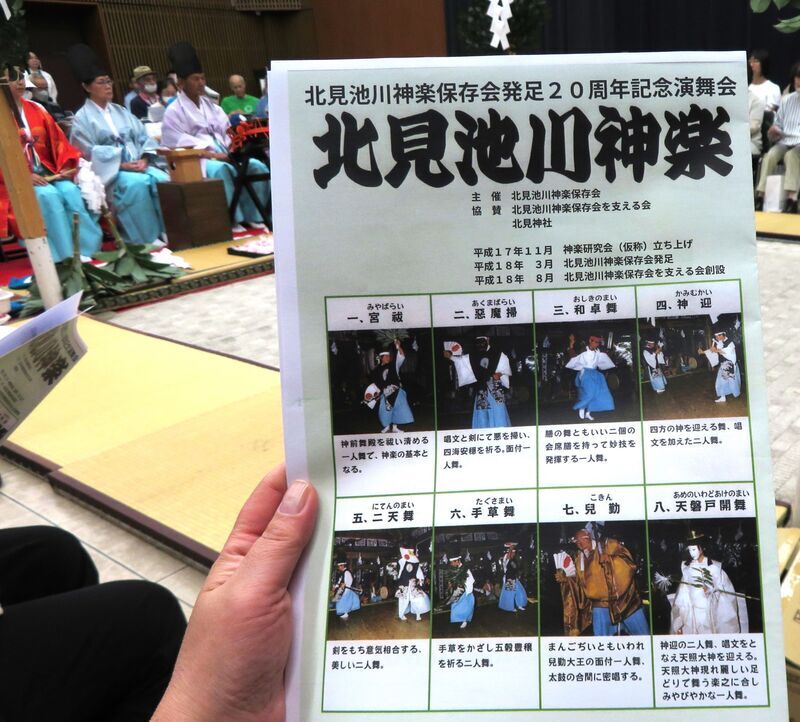 北見池川神楽保存会発足20周年記念演舞会
北見池川神楽
主 催 北見池川神楽保存会
協 賛 北見池川神楽保存会を支える会
北見神社
平成17年11月 神楽研究会（仮称）立ち上げ
平成18年 3月 北見池川神楽保存会発足
平成18年 8月 北見池川神楽保存会を支える会創設
みやばらい
一、宮 祓
神前舞殿を祓い清める
一人舞で、神楽の基本と
なる。
あくまばらい
二、悪魔掃
唱文と剣にて悪を掃い、
四海安穏を祈る。面付一
人舞。
おしきのまい
三、和卓舞
膳の舞ともいい二個の
会席膳を持って妙技を
発揮する一人舞。
かみむかい
四、神 迎
四方の神を迎える舞、唱
文を加えた二人舞。
にてんのまい
五、二天舞
剣をもち意気相合する、
美しい二人舞。
たぐさまい
六、手草舞
手草をかざし五穀豊穣
を祈る二人舞。
こきん
七、兒 勤
まんごぢいともいわれ
兒勤大王の面付一人舞、
太鼓の合間に密唱する。
あめのいわどあけのまい
八、天磐戸開舞
神迎の二人舞、唱文をと
なえ天照大神を迎える。
天照大神現れ麗しい足
どりで舞う楽之に合し
みやびやかな一人舞。
川神楽